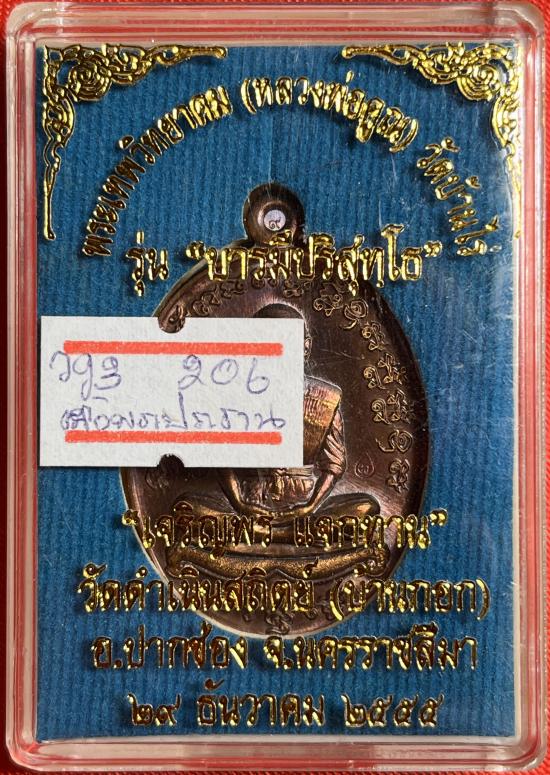 พระเทพวิทยาคม (หลวงพ่อคูณ) วัดบ้านไร่
รุ่น "บารมีปริสุทฺโธ"
206
"เจริญพร แจกทาน"
วัดดำเนินสถิตย์ (บ้านกอก)
อ.ปากช่อง จ.นครราชสีมา
๒๙ ธันวาคม ๒๕๕๕